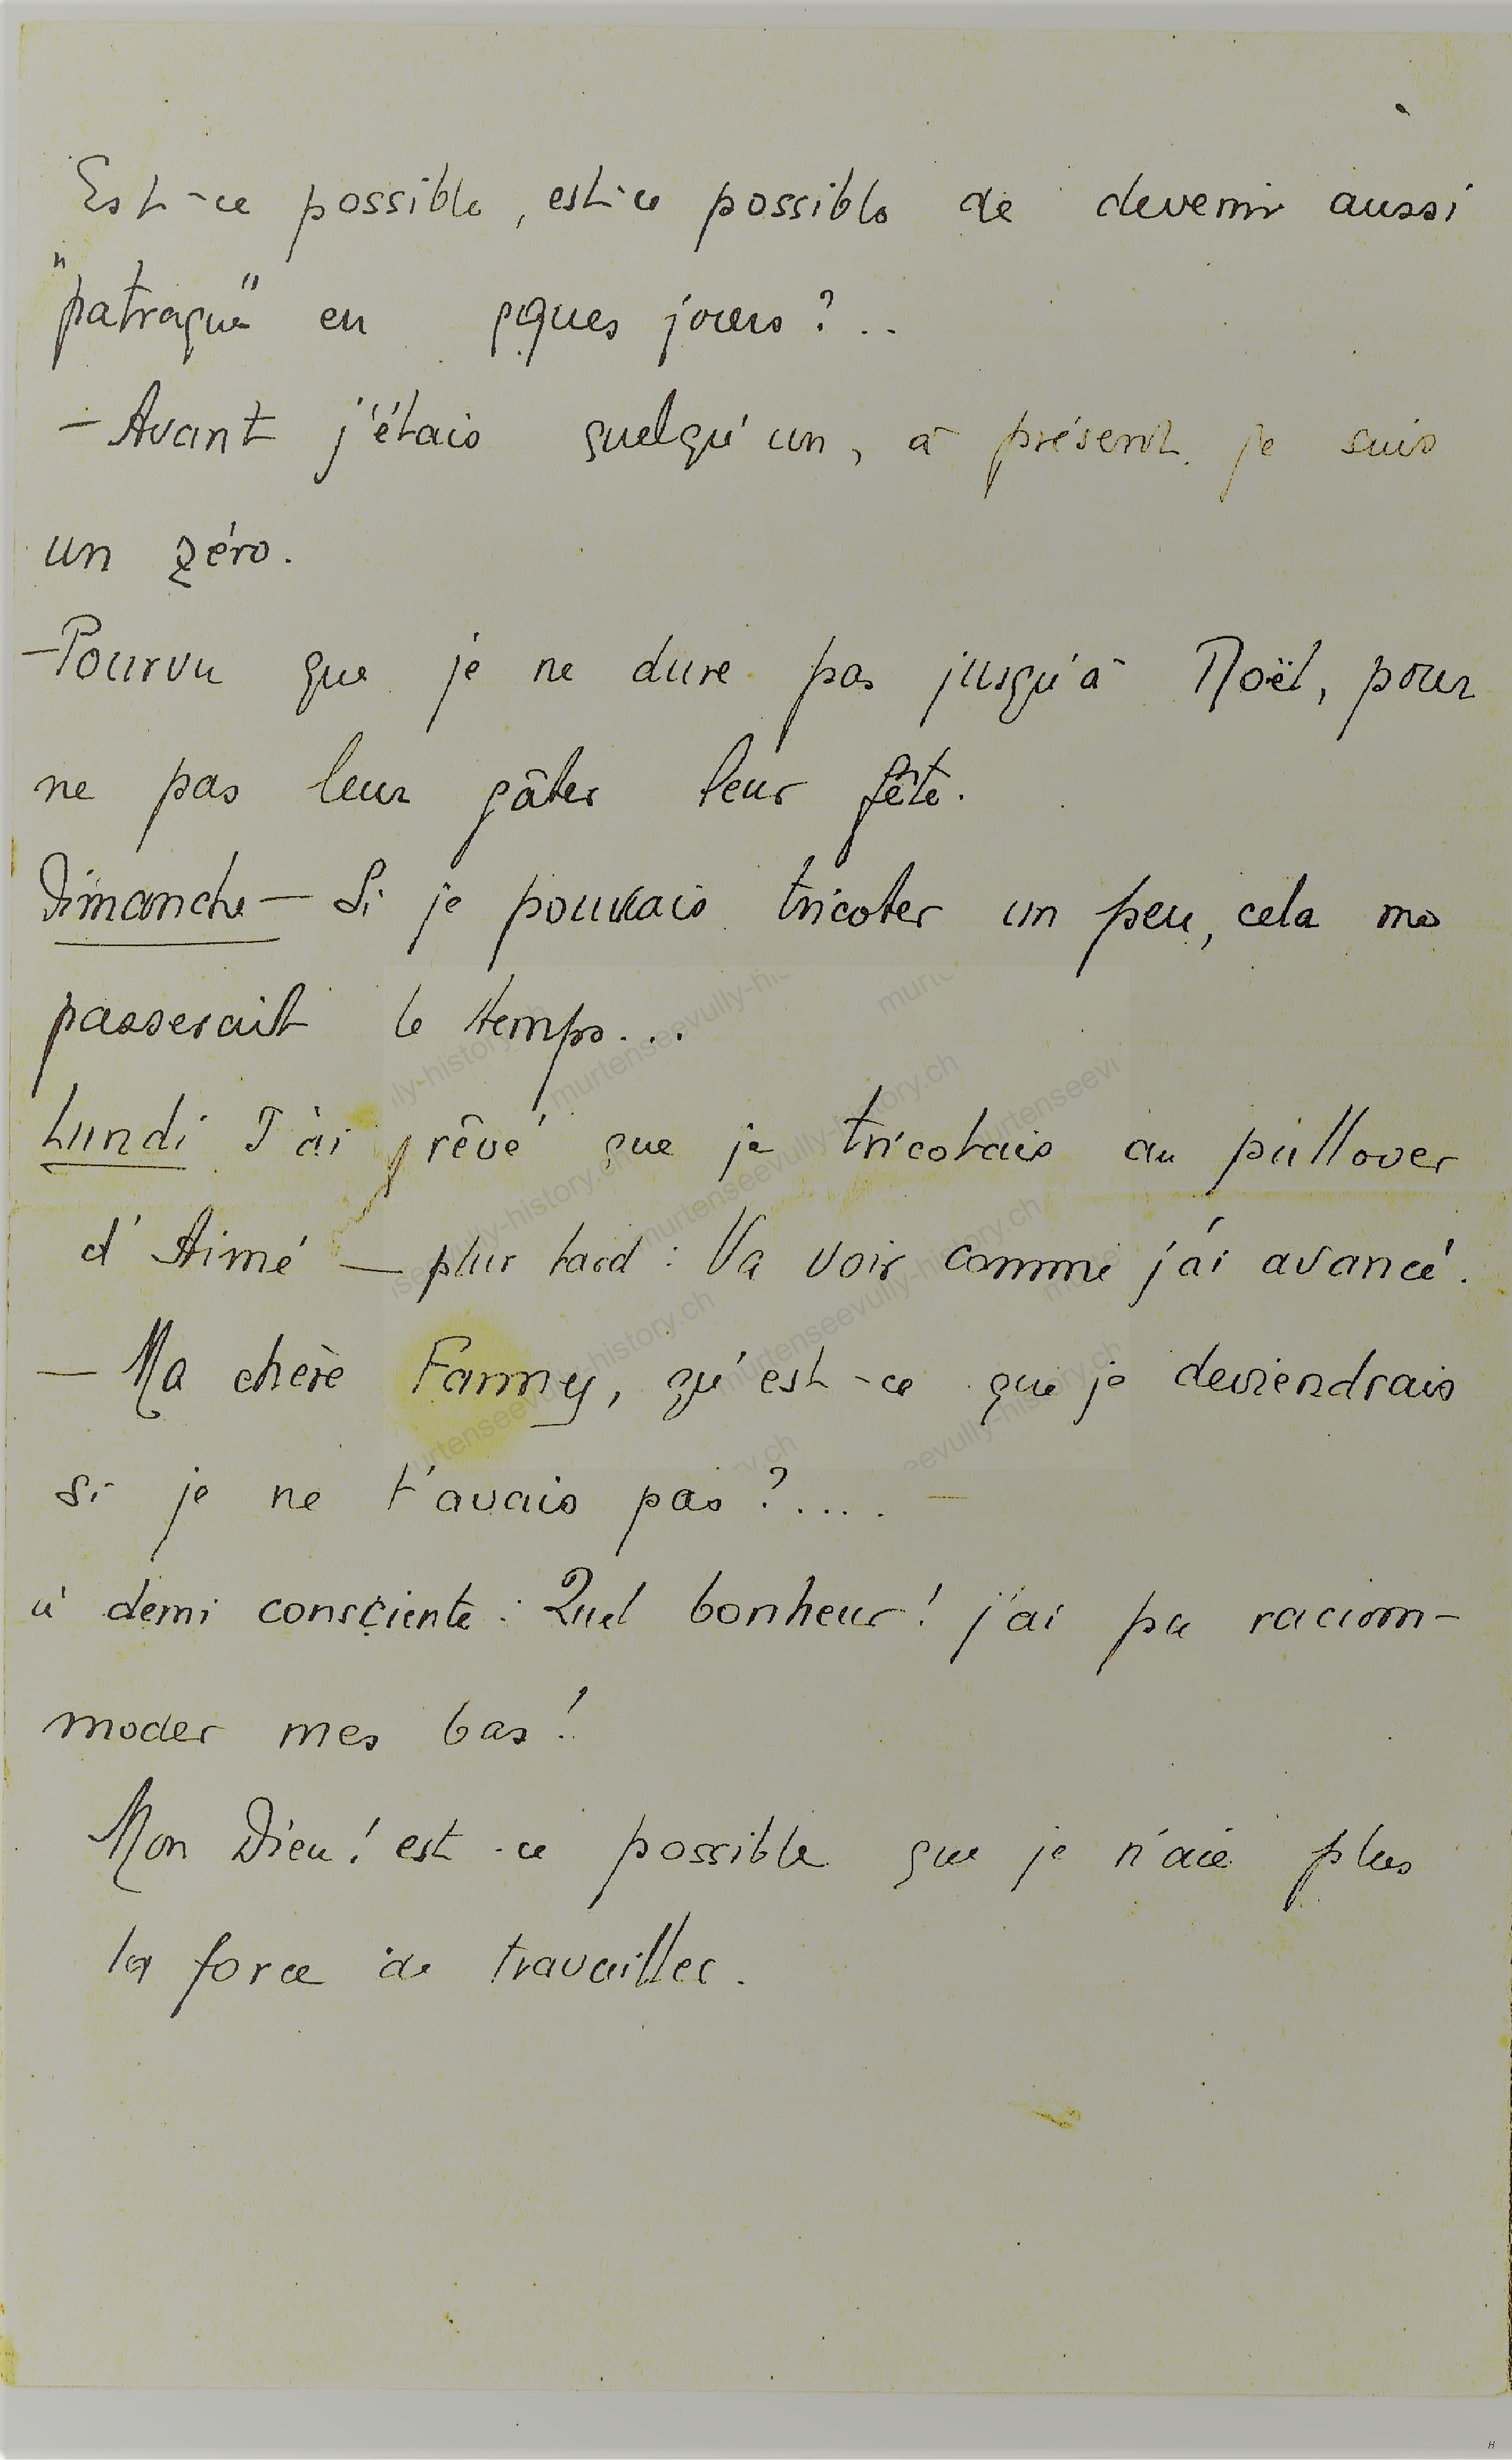 Est-ce possible, est-ce possible de devenir aussi
"patraque" en qques jours ?..
- Avant j'étais quelqu'un, à présent je suis
un zéro.
- Pourvu que je ne dure pas jusqu'à Noël, pour
ne pas leur gâter leur fête.
Dimanche - Si je pouvais tricoter un peu, cela me
passerait le temps...
Lundi J'ai rêvé que je tricotais au pullover
d'Aimé - plus tard : Va voir comme j'ai avancé.
- Ma chère Fanny, qu'est-ce que je deviendrais
si je ne t'avais pas ?.... -
à demi consciente : Quel bonheur ! j'ai pu racom-
moder mes bas !
Mon Dieu ! est-ce possible que je n'aie plus
la force de travailler.
murtenseevully-history.ch
H